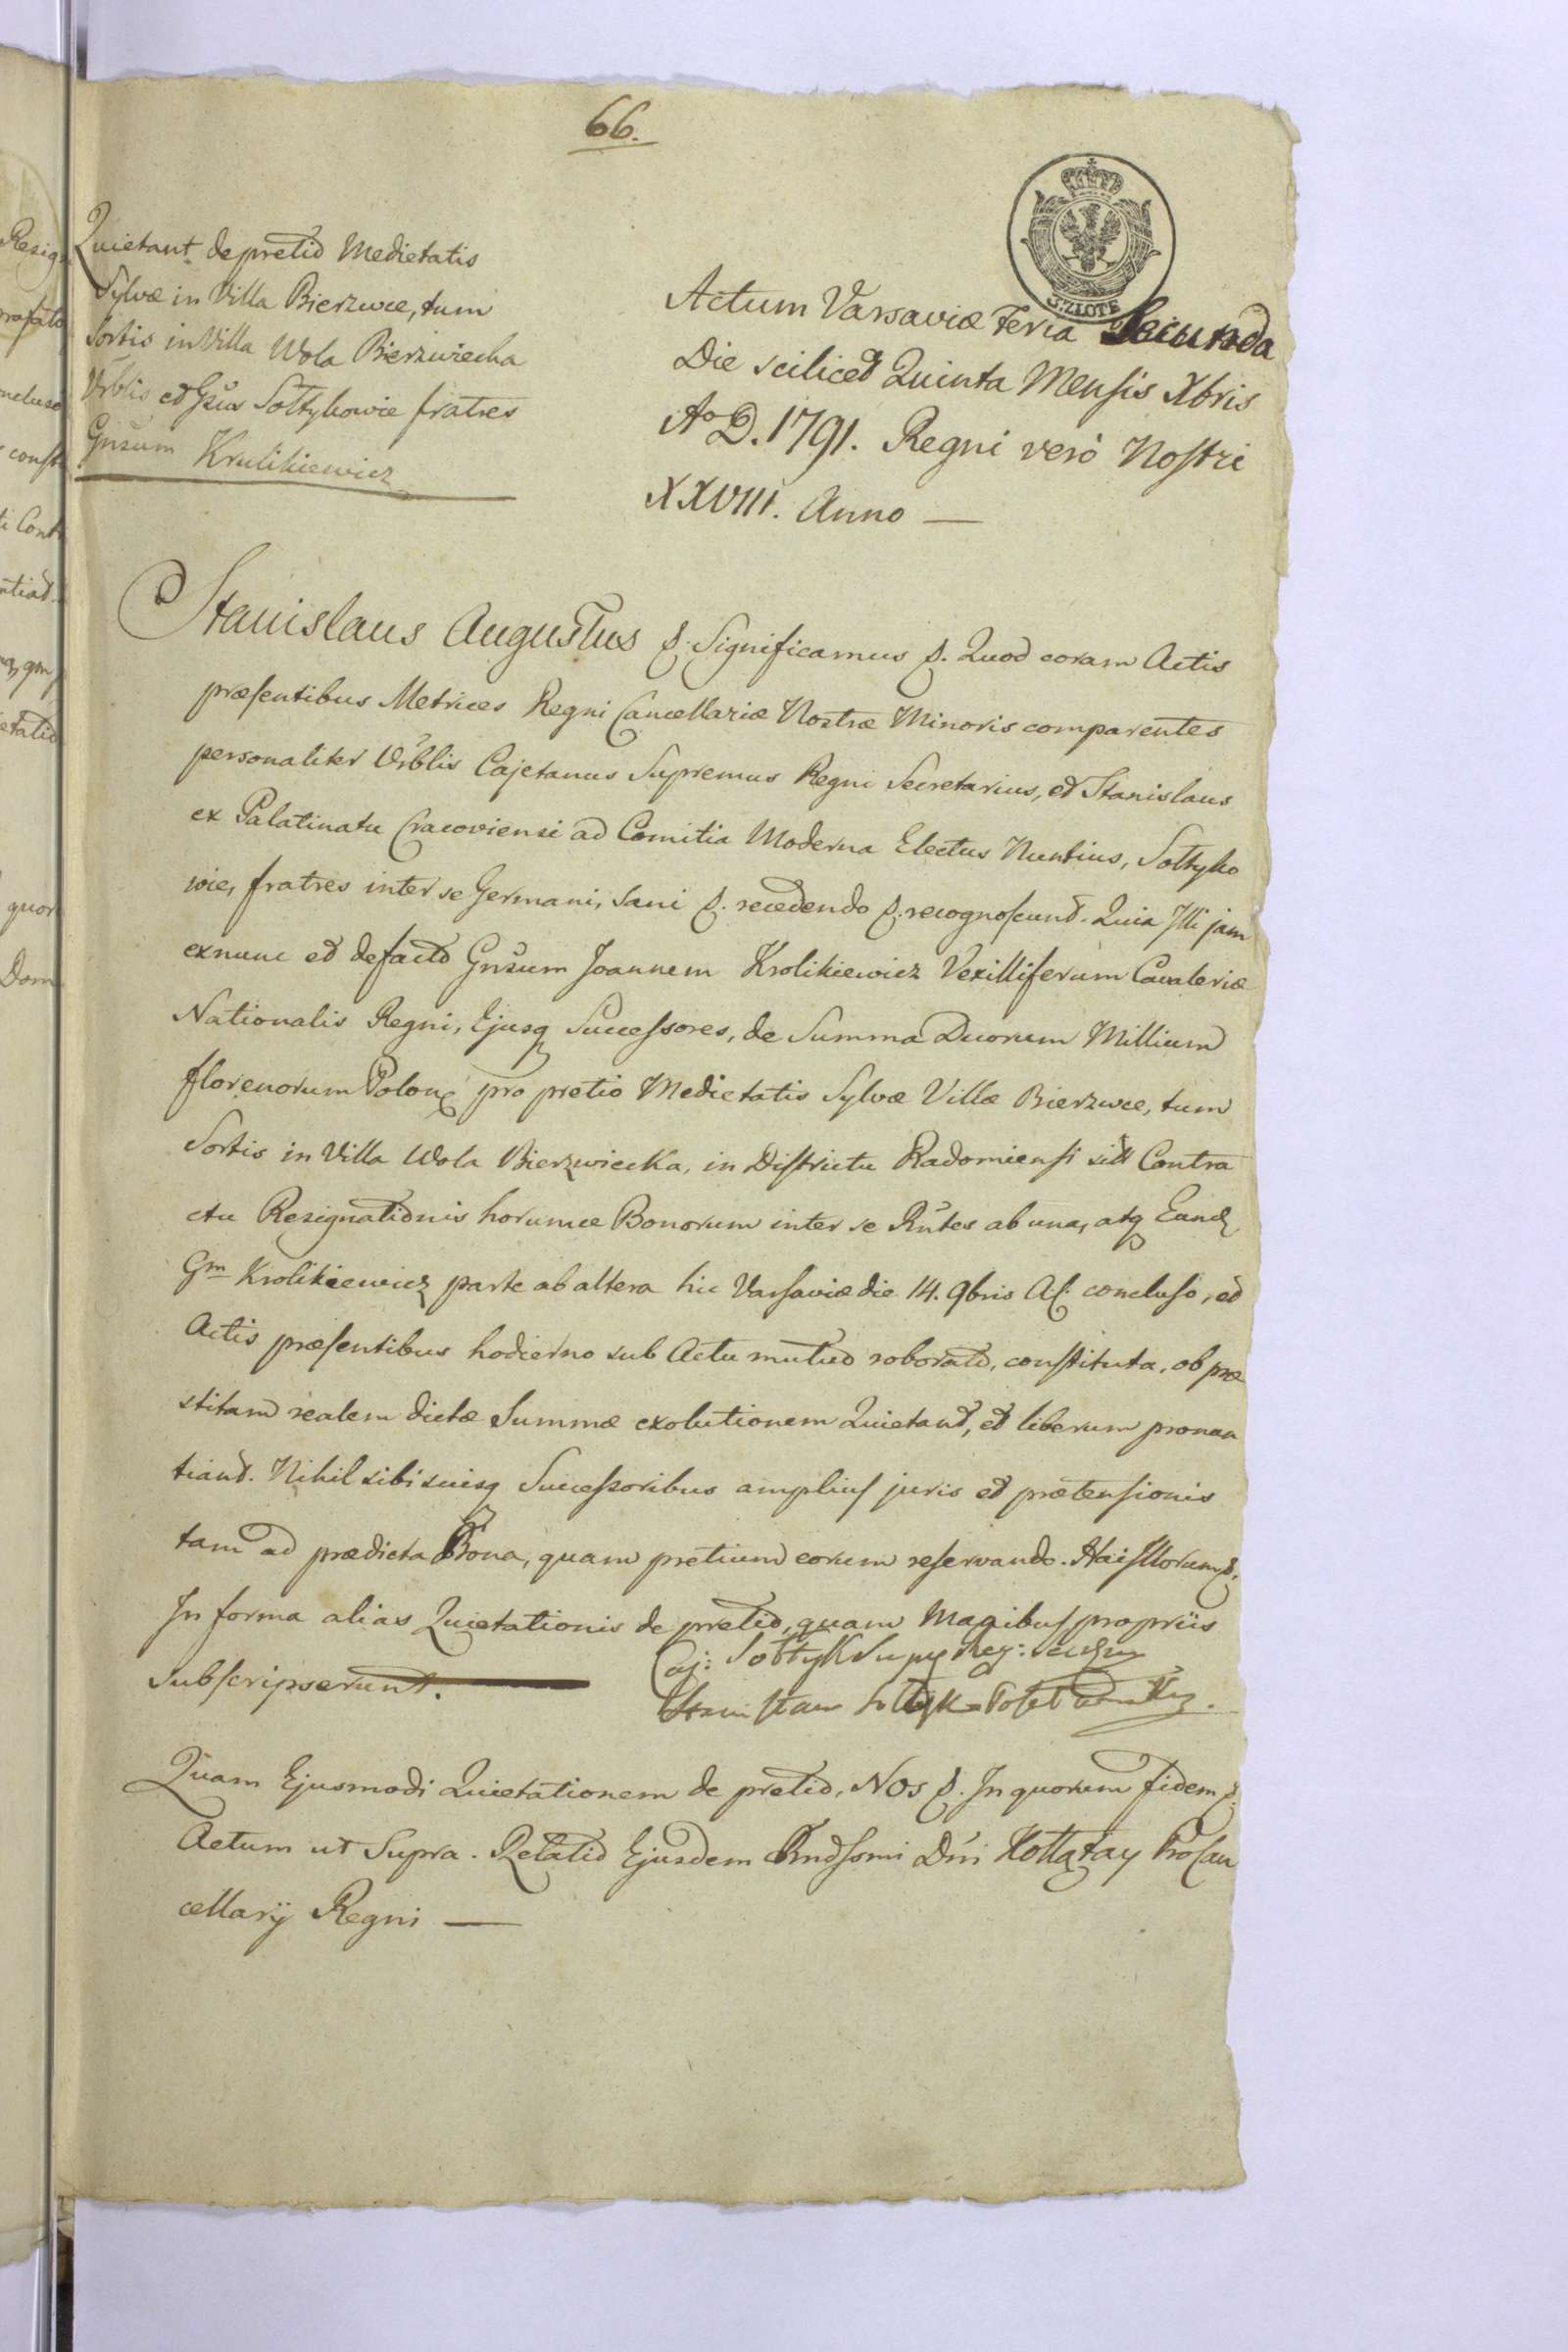 66.
Quietant de pretio Medietatis
Sylvæ in Villa Bierzwce, tum
Sortis in Villa Wola Bierzwiecka
Urblis et Gsus Sołtykowie fratres
Gnsum Krulikiewicz
3. ZŁOTE
Actum Varsaviæ Feria Secunda
Die scilicet Quinta Mensis Xbris
Aº D. 1791. Regni verò Nostri
XXVIII. Anno —
Stanislaus Augustus &. Significamus &. Quod coram Actis
præsentibus Metrices Regni Cancellariæ Nostræ Minoris comparentes
personaliter Urblis Cajetanus Supremus Regni Secretarius, et Stanislaus
ex Palatinatu Cracoviensi ad Comitia Moderna Electus Nuntius, Sołtyko
wie, fratres inter se Germani, sani &. recedendo &. recognoscunt. Quia Illi jam
exnunc et defacto Gnsum Joannem Krolikiewicz Vexilliferum Cavaleriæ
Nationalis Regni, Ejusq Successores, de Summa Duorum Millium
florenorum Polon pro pretio Medietatis Sylvæ Villæ Bierzwce, tum
Sortis in Villa Wola Bierzwiecka, in Districtu Radomiensi sitt Contra
ctu Resignationis horumce Bonorum inter se Rntes ab una, atq Eund
Gm Krolikiewicz parte ab altera hic Varsaviæ die 14. 9bris A. concluso, et
Actis præsentibus hodierno sub Actu mutuo roborato, constituta, ob præ
stitam realem dictæ Summæ exolutionem Quietant, et liberum pronun
tiant. Nihil sibi suisq Successoribus amplius juris et prætensionis
tam ad prædicta Bona, quam pretium eorum reservando. Hac Illorum &.
In forma alias Quietationis de pretio, quam Manibus propriis
subscripserunt.
Caj: Sołtyk Supr Reg: Secr
Stanisław Sołtyk Poseł
Quam Ejusmodi Quietationem de pretio, Nos &. In quorum fidem &.
Actum ut Supra. Relatio Ejusdem Rndssmi Dni Kołłątay ProCan
cellarij Regni —